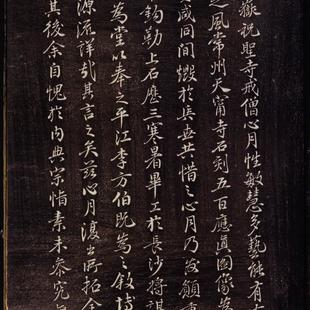 巖祝聖寺戒僧心月性敏慧多藝能有古
之風常州天甯寺石刻五百應真圖像為
咸同間燬於兵燹共惜之心月乃發願重
鈎勒上石歷三寒暑畢工於長沙將謀
為堂以奉之平江李方伯既為之敘博
源流詳哉其言之矣茲心月復出所拓全
其後余自愧於內典宗恉素未參究